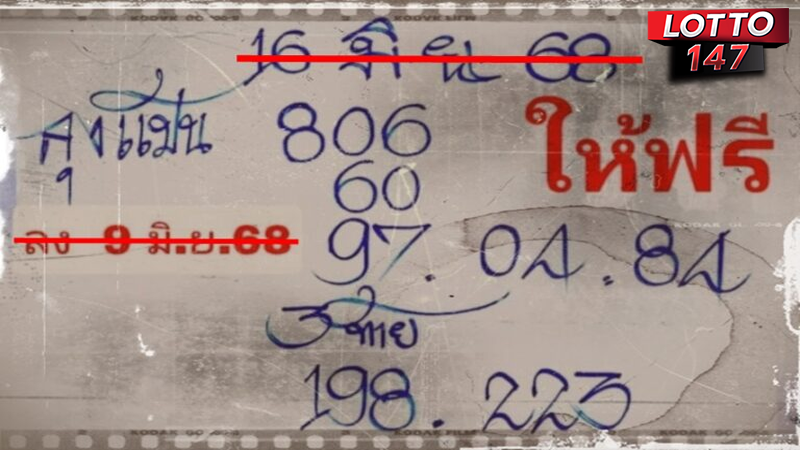 LOTTO
147
16 มิ.ย. 68
ลุงแม่น 806
ให้ฟรี
60
ลง 9 มิ.ย.68
97. 04. 84
3 ท้าย
198. 223